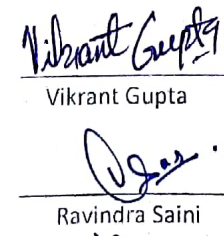 Vikrant Gupta
Vikrant Gupta
Ravindra Saini